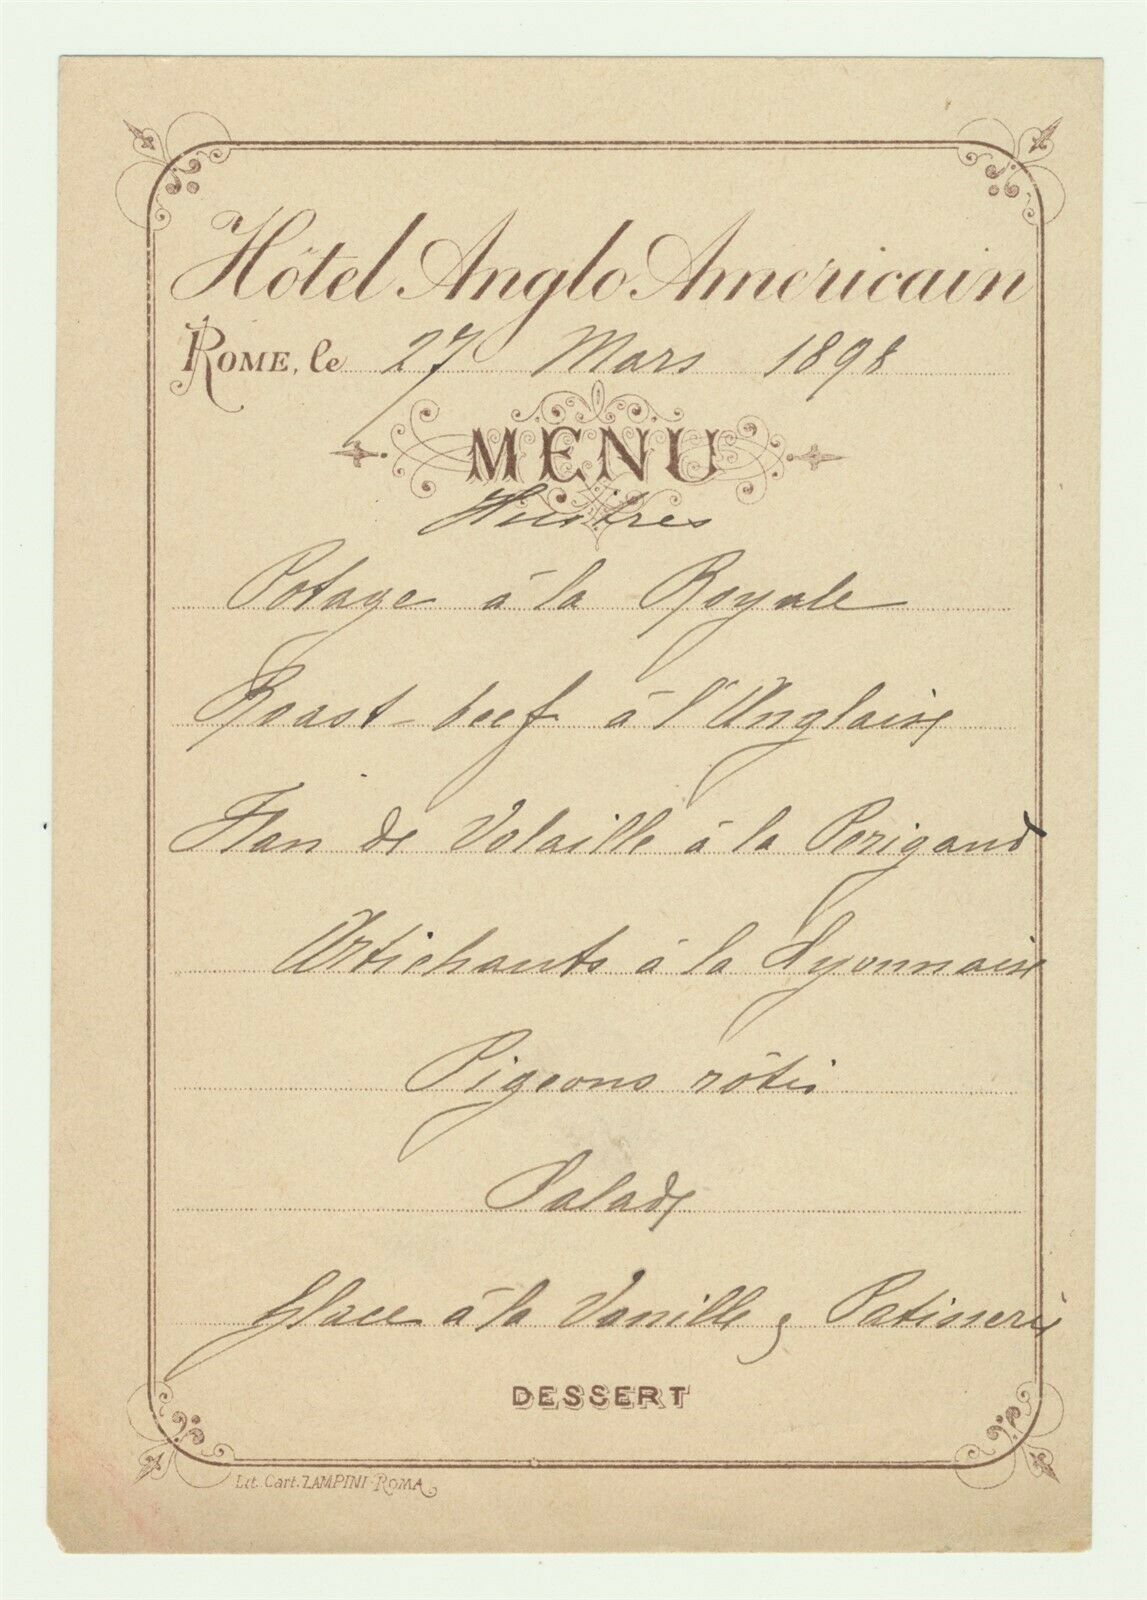 Hôtel Anglo Américain
Rome, le 27 Mars 1898
MENU
Huitres
Potage à la Royale
Roast-beef à l'Anglaise
Flan de Volaille à la Perigand
Artichauts à la Lyonnaise
Pigeons rôtis
Salade
Glace à la Vanille & Patisserie
DESSERT
Lit. Cart. ZAMPINI-ROMA